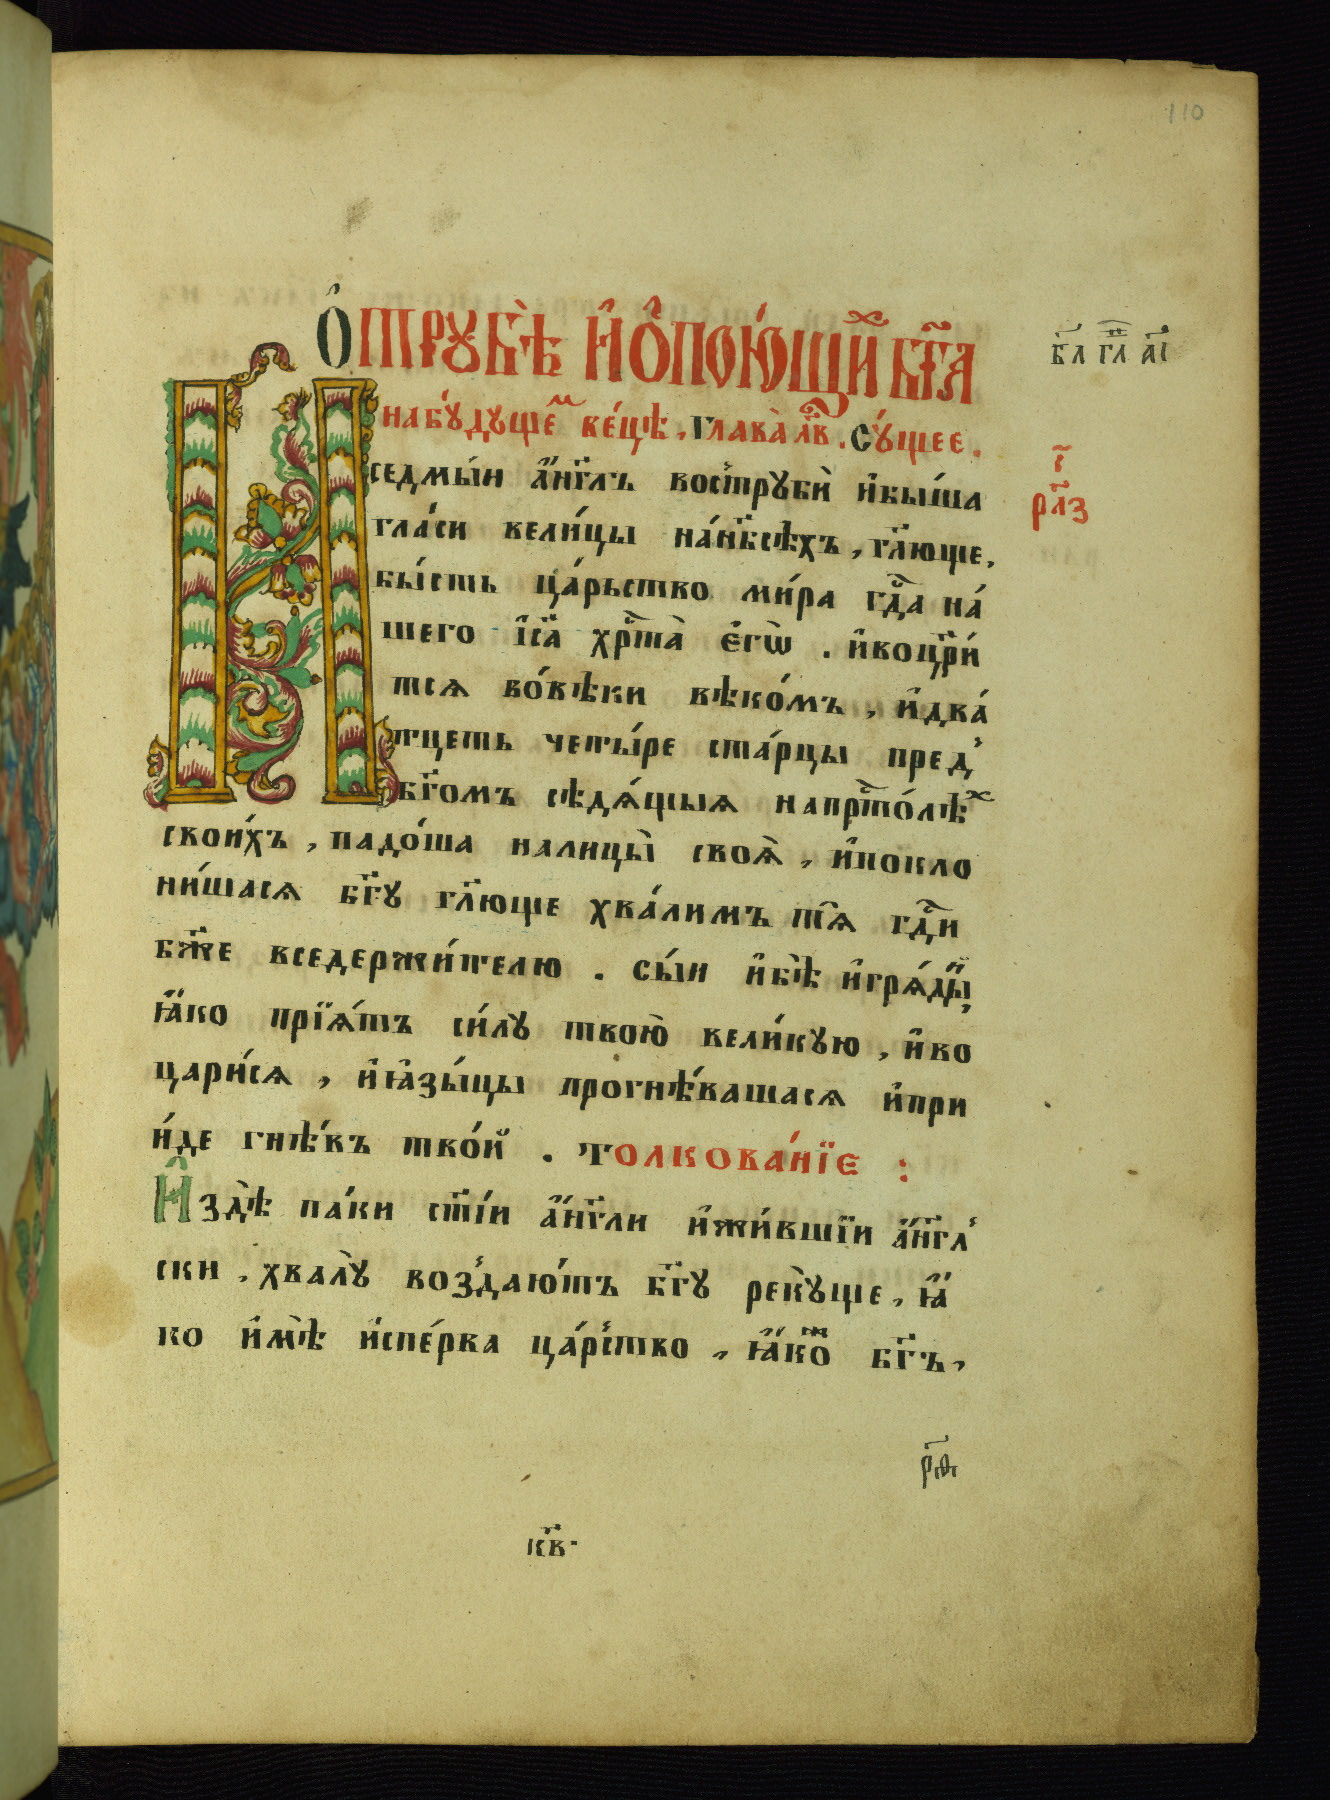 110
Ѻ҆трꙋбѣ̀ и҆ѻ҆пою́щи бг҃а
бл҃ гл҃ аі҃
набꙋ́дꙋщеⷨ ве́цѣ, глава̀ л҃в. сꙋ́щее.
И
седмы́и а҆́нг҃лъ вост́рꙋбѝ и҆бы́ша
рл҃з
гла́си вели́цы на́нб҃сѣхъ, гл҃юще,
бы́сть ца́рьство ми́ра гдⷭ҇а на́
шего і҆с҃а хрⷭ҇та̀ є҆гѡ̀. и҆воцр҃и́
тсѧ во́вѣки вѣко́мъ, и҆два́
тцеть четы́ре ста́рцы пред̾
бг҃омъ сѣдѧ́щыѧ напрⷭ҇то́лѣⷯ
свои́хъ, падо́ша налицы̀ своѧ̀, и҆покло
ни́шасѧ бг҃ꙋ гл҃юще хва́лимъ тѧ̀ гдⷭ҇и
бж҃е вседержи́телю. сы́и и҆бѣ̀ и҆грѧ́дыⷻ҇,
ꙗ҆́ко прїѧ́тъ си́лꙋ твою̀ вели́кꙋю, и҆во
цари́сѧ, и҆ꙗ҆зы́цы прогнѣ́вашасѧ и҆при
и́де гнѣ́въ тво́й. толкова́нїе :
И҆здѣ̀ па́ки ст҃і́и а҆́нг҃ли и҆жи́вшїи а҆́нг҃л̾
ски, хвалꙋ̀ возд̾аю́тъ бг҃ꙋ рекꙋ̀ще, ꙗ҆́
ко и҆мѣ̀ и҆спе́рва ца́рс̾тво, ꙗ҆́коⷤ бг҃ъ,
рѳ҃і
кв҃